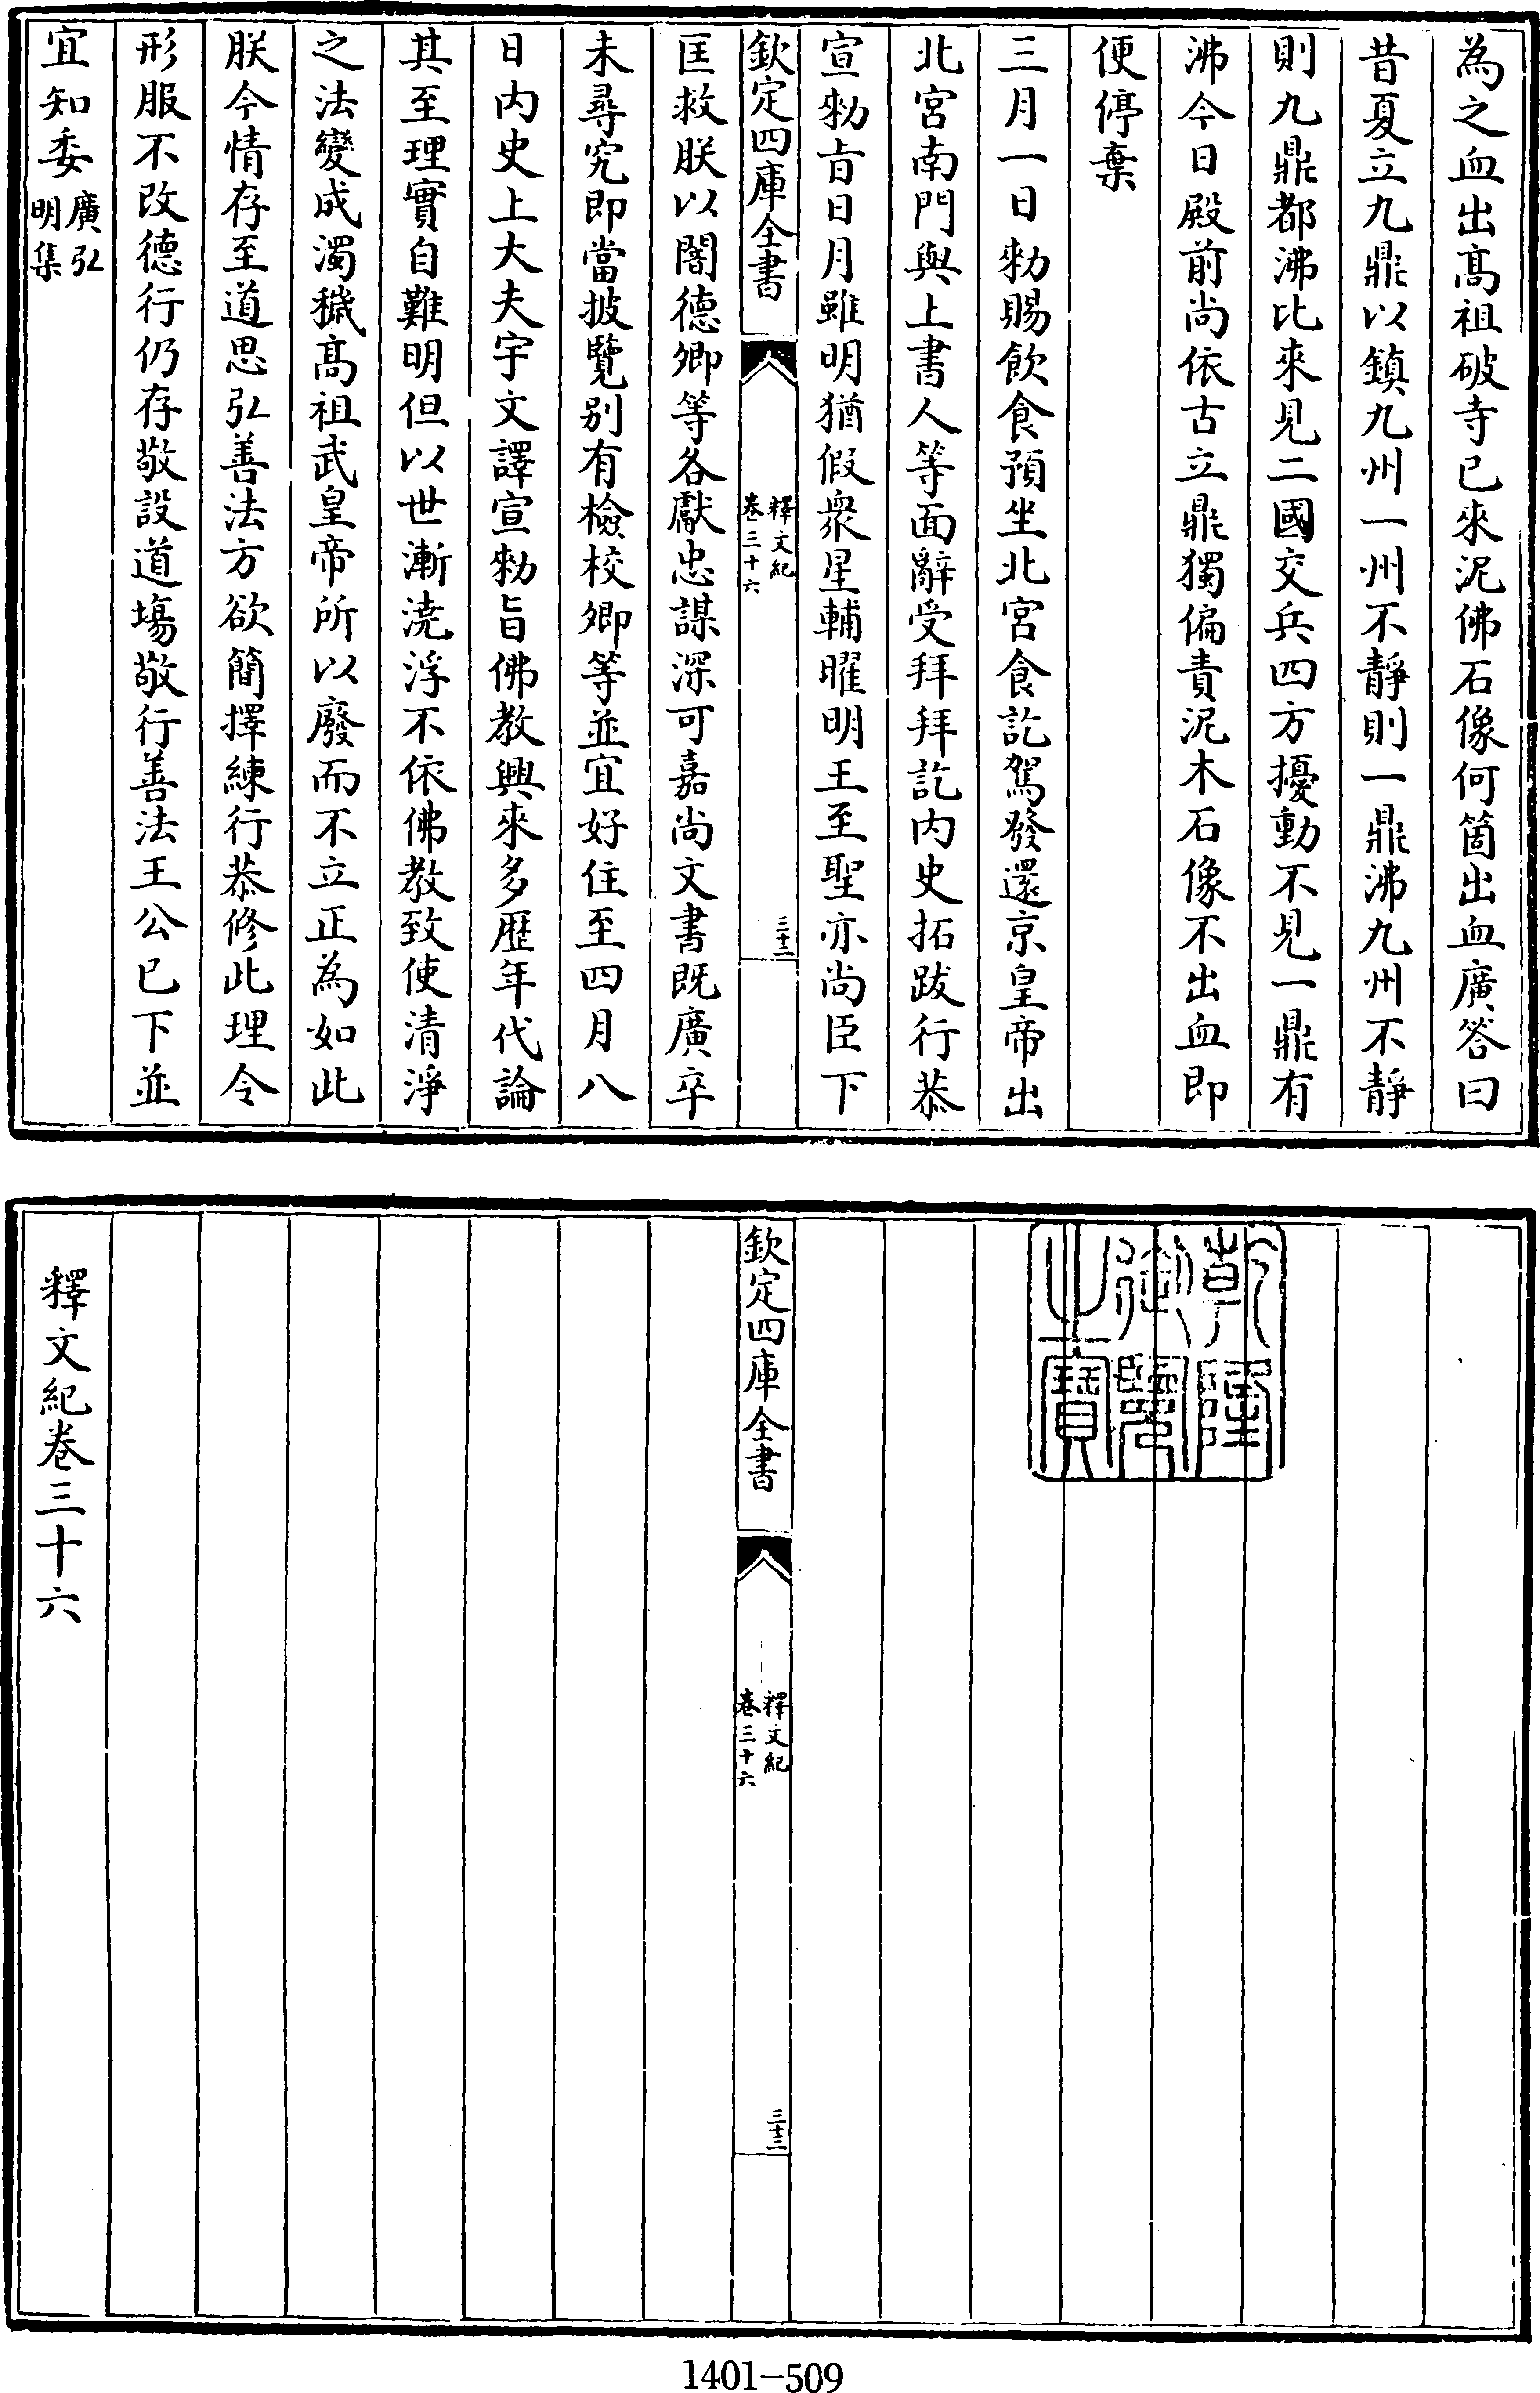 為之血出髙祖破寺已來泥佛石像何箇出血廣答曰
昔夏立九鼎以鎮九州一州不靜則一鼎沸九州不靜
則九鼎都沸比來見二國交兵四方擾動不見一鼎有
沸今日殿前尚依古立鼎獨偏責泥木石像不出血即
便停棄
三月一日敕賜飲食預坐北宫食訖駕發還京皇帝出
北宫南門與上書人等面辭受拜拜訖内史拓跋行恭
宣敕㫖日月雖明猶假衆星輔曜明王至聖亦尚臣下
欽定四庫全書
釋文紀
卷三十六
三十二
匡救朕以闇德卿等各獻忠謀深可嘉尚文書既廣卒
未尋究即當披覽别有檢校卿等並宜好住至四月八
日内史上大夫宇文譯宣敕旨佛教興來多歴年代論
其至理實自難明但以世漸澆浮不依佛教致使清淨
之法變成濁穢髙祖武皇帝所以廢而不立正為如此
朕今情存至道思弘善法方欲簡擇練行恭修此理令
形服不改德行仍存敬設道場敬行善法王公已下並
宜知委廣弘明集
乾隆御覽之寶
欽定四庫全書
釋文紀
卷三十六
三十三
釋文紀卷三十六
1401-509